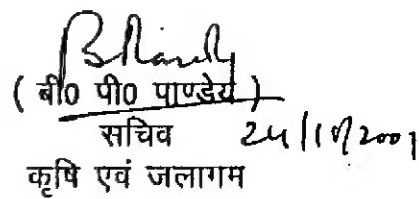 ( बी0 पी0 पाण्डेय )
सचिव 24/10/2001
कृषि एवं जलागम